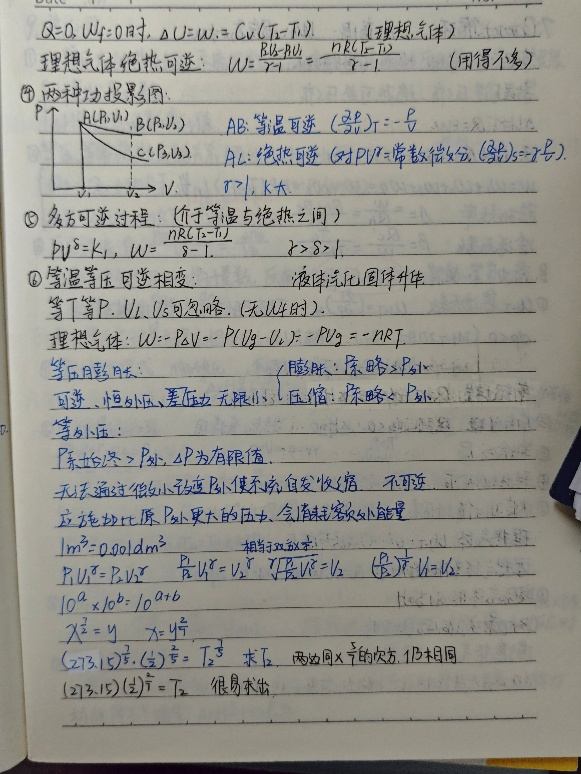 Q=0, Wf=0时, ΔU=W.=Cv(T₂-T₁) (理想气体)
理想气体绝热可逆: W=(P₂V₂-P₁V₁)/(γ-1)=nR(T₂-T₁)/(γ-1) (用得不多)
④两种功投影图:
P
A(P₁V₁)
B(P₂V₂)
C(P₃V₃)
V₁ V₂ V.
AB:等温可逆 (∂P/∂V)T=-P/V
AC:绝热可逆 (对PVγ=常数微分,(∂P/∂V)s=-γP/V)
γ>1, K大
⑤多方可逆过程:(介于等温与绝热之间)
PVδ=K₁, W=nR(T₂-T₁)/(δ-1). γ>δ>1.
⑥等温等压可逆相变: 液体汽化固体升华
等T等P. VL、VS可忽略.(无Wf时).
理想气体:W=-PΔV=-P(Vg-VL)=-PVg=-nRT.
等压膨胀: 膨胀:P系略>P外
可逆、恒外压、差压力无限小 压缩:P系略<P外.
等外压:
P系始终>P外, ΔP为有限值.
无法通过微小改变P外使系统自发收缩 不可逆
应施加比原P外更大的压力,会消耗额外能量
1m³=0.001dm³
P₁V₁γ=P₂V₂γ P₁/P₂V₁γ=V₂γ γ√(P₁/P₂V₁γ)=V₂ (P₁/P₂)^(1/γ)V₁=V₂
10^a×10^b=10^(a+b)
x^(7/2)=y x=y^(2/7)
(273.15)^(7/5)·(1/2)^(2/5)=T₂^(7/5) 求T₂ 两边同×5/7的次方,仍相同
(273.15)(1/2)^(2/7)=T₂ 很易求出